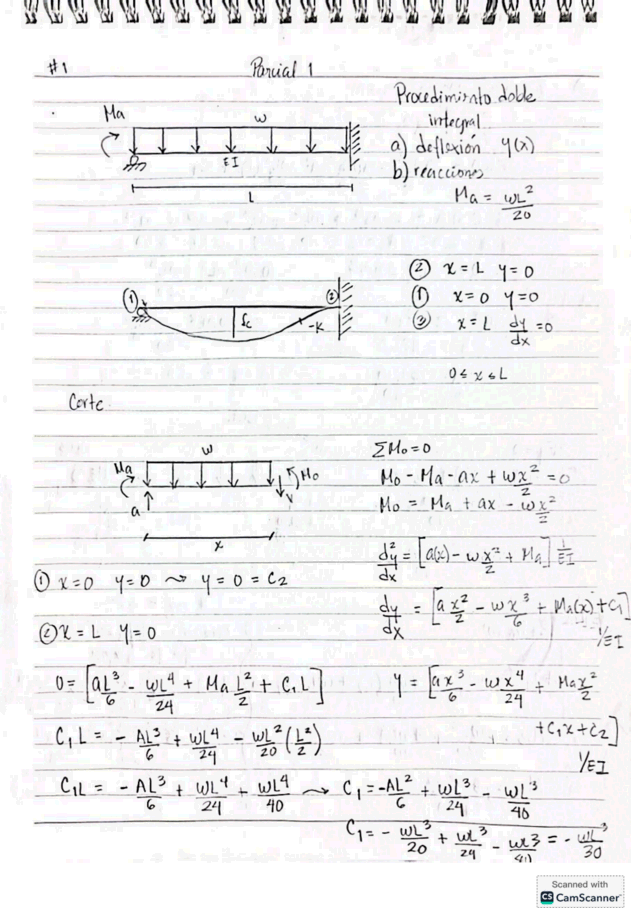 #1
Parcial 1
Procedimiento doble
integral
a) deflexión y(x)
b) reacciones
Ma = wL²/20
Ma
w
EI
L
② x = L y = 0
① x = 0 y = 0
③ x = L dy/dx = 0
0 ≤ x ≤ L
①
②
fc
-K
Corte
w
Ma
Mo
a
v
x
ΣMo = 0
Mo - Ma - ax + wx²/2 = 0
Mo = Ma + ax - wx²/2
d²y/dx = [a(x) - wx²/2 + Ma] 1/EI
① x = 0 y = 0 ⤳ y = 0 = C2
dy/dx = [ax²/2 - wx³/6 + Ma(x) + C1] 1/EI
② x = L y = 0
0 = [aL³/6 - wL⁴/24 + Ma L²/2 + C1L]
y = [ax³/6 - wx⁴/24 + Max²/2
+ C1x + C2] 1/EI
C1L = - AL³/6 + wL⁴/24 - wL²/20 (L²/2)
C1L = - AL³/6 + wL⁴/24 + wL⁴/40 ⤳ C1 = -AL²/6 + wL³/24 - wL³/40
C1 = - wL³/20 + wL³/24 - wL³/40 = - wL³/30
Scanned with
CS CamScanner